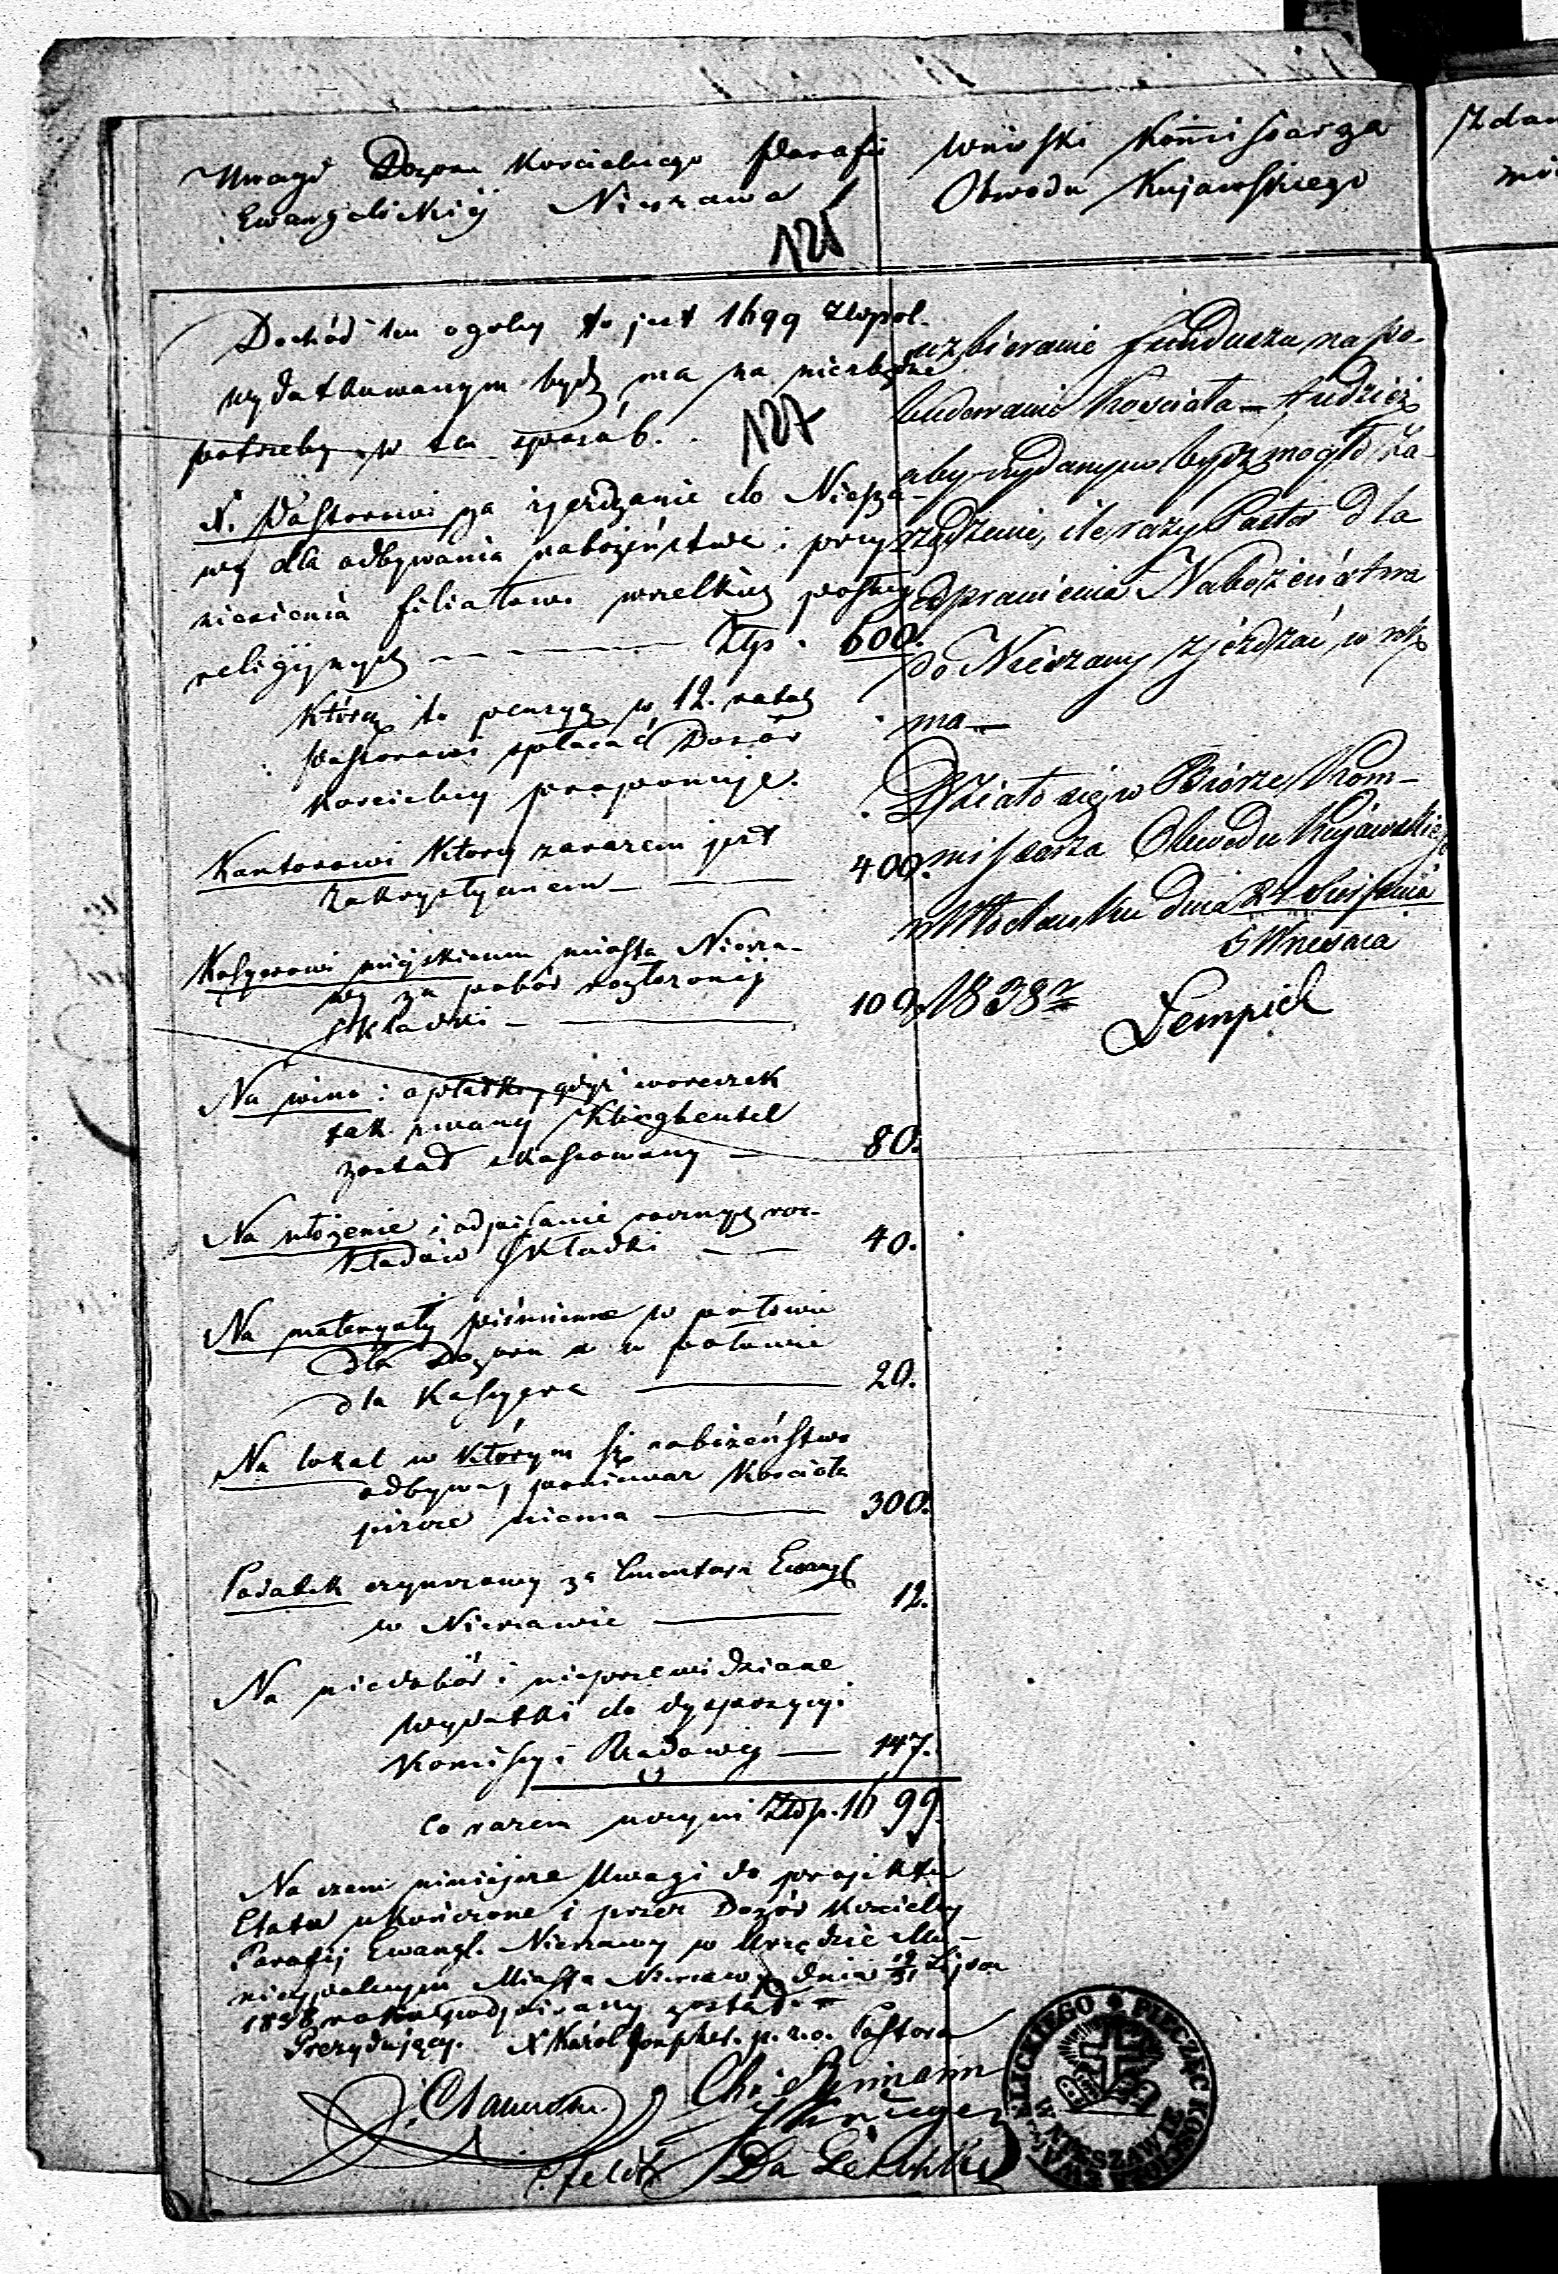 Uwagi Dozoru Kościelnego Parafii
Ewangelickiéj Nieszawa
125
Dochód ten ogólny to jest 1699 Złopol.
wydatkowanym bydź ma na niezbędne
potrzeby w ten sposób.
127
1. Pastorowi za zjeżdżanie do Niesza-
wy dla odbywania nabożeństwa i przy
niesienia filiałowi wszelkiéj posługi
religijnych Złp. 600.
którą to pensyą w 12. ratach
Pastorowi spłacać Dozór
kościelny proponuje.
Kantorowi który zarazem jest
Zakrystyanem 400.
Kassyerowi miejskiemu miasta Niesza-
wy za pobór rozłożonéj
składki 100.
Na wino i opłatki, gdyż woreczek
tak zwany Klingbeutel
został skassowany 80.
Na ułożenie i odpisanie rocznych roz-
kładów składki 40.
Na materyały piśmienne w połowie
dla Dozoru a w połowie
dla Kassyera 20.
Na lokal w którym się nabożeństwo
odbywa, ponieważ Kościoła
jeszcze niema 300.
Podatek czynszowy za Cmentarz Ewang.
w Nieszawie 12.
Na niedobór i nieprzewidziane
wydatki do dyspozycyi
Komissyi Rządowéj 147.
Co razem uczyni Złop. 1699.
Na czem niniejsze Uwagi do projektu
Etatu ukończone i przez Dozór Kościelny
Parafij Ewangl. Nieszawy w Urzędzie Mu-
nicypalnym Miasta Nieszawy dnia 19/31 Lipca
1838 roku podpisany został.
Prezydujący. X Karol p. z. o. Pastora
Wnioski Kommissarza
Obwodu Kujawskiego
uzbieranie funduszu na po-
budowanie Kościoła — tudzież
aby wydanym bydź mogło Za-
rządzenie, ile razy Pastor dla
odprawienia Nabożeństwa
do Nieszawy zjeżdżać w rok
ma —
Działo się w Biórze Kom-
missarza Obwodu Kujawskiego
w Włocławku dnia 24 Sierpnia
5 Września
1838 r
Lempick
Zdan
PIECZĘĆ KOŚCIOŁA EWANGELICKIEGO
W NIESZAWIE